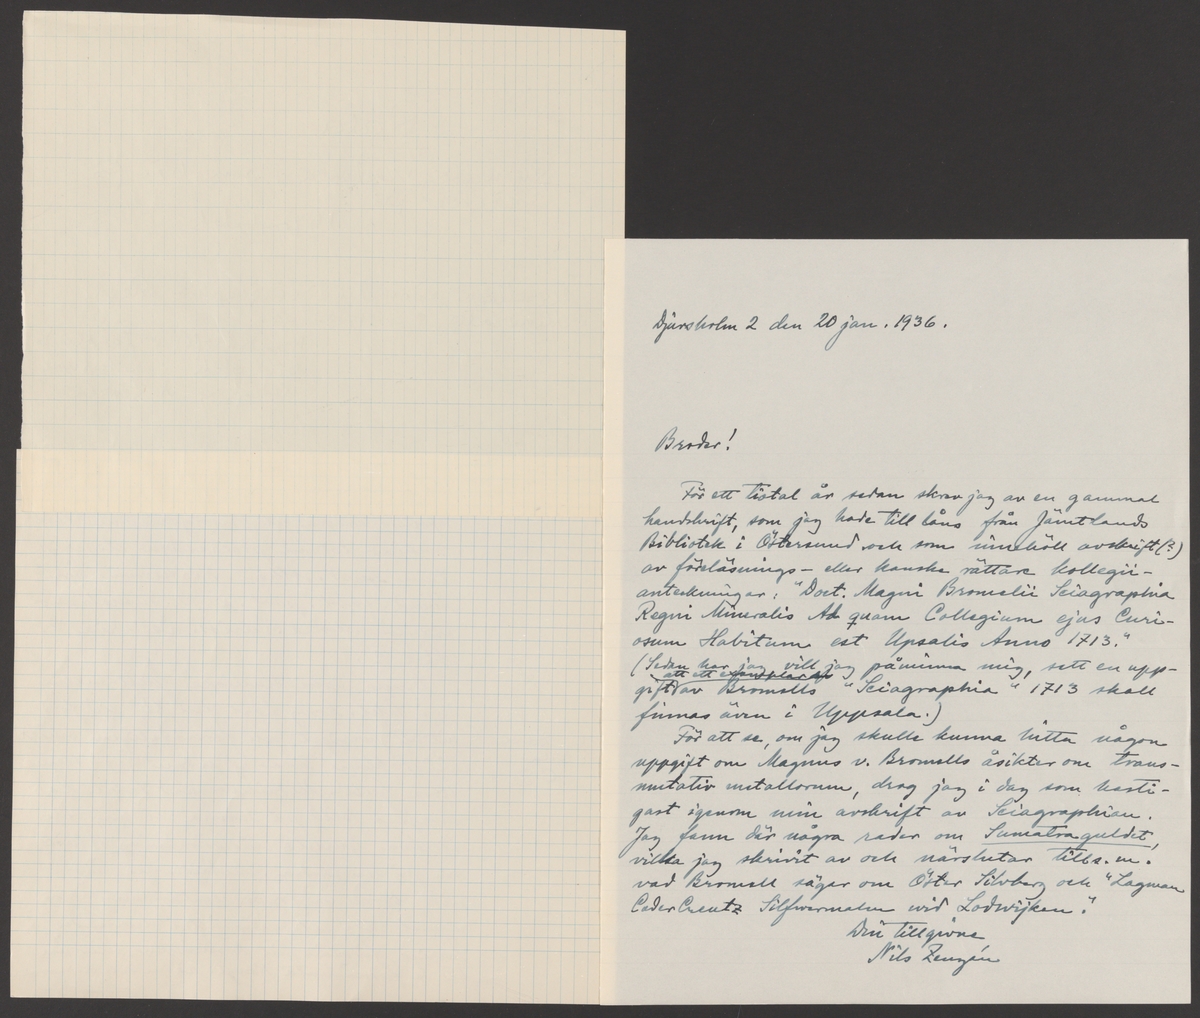 Djursholm 2 den 20 jan. 1936.
Broder!
För ett tiotal år sedan skrev jag av en gammal
handskrift, som jag hade till låns från Jämtlands
Bibliotek i Östersund och som innehöll avskrift(?)
av föreläsnings- eller kanske rättare kollegii-
anteckningar: "Doct. Magni Bromelii Sciagraphia
Regni Mineralis Ad quam Collegium ejus Curi-
osum Habitum est Upsalis Anno 1713."
(Sedan har jag, vill jag påminna mig, sett en upp-
gift att ett exemplar av Bromells "Sciagraphia" 1713 skall
finnas även i Uppsala.)
För att se, om jag skulle kunna hitta någon
uppgift om Magnus v. Bromells åsikter om trans-
mutatio metallorum, drog jag i dag som hasti-
gast igenom min avskrift av Sciagraphian.
Jag fann där några rader om Sumatraguldet,
vilka jag skrivit av och närslutar tills.m.
vad Bromell säger om Öster Silvberg och "Lagman
CederCreutz Silfwermalm wid Lodwijken."
Din tillgivne
Nils Zenzén